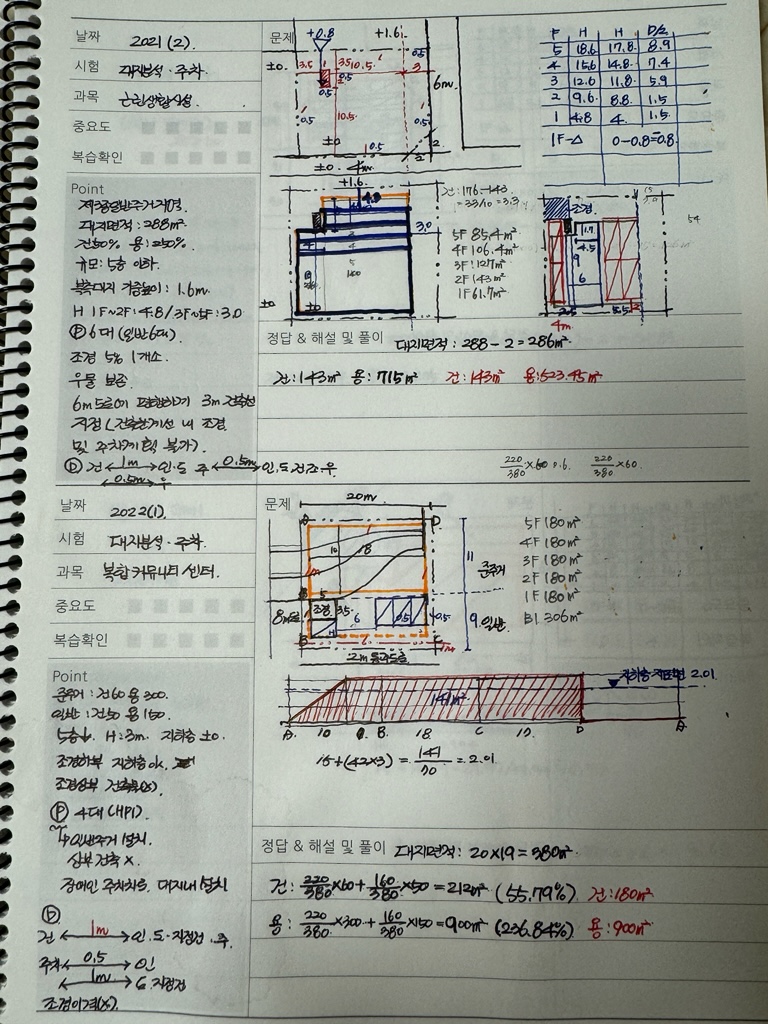 날짜 2021 (2).
시험 대지분석·주차
과목 근린생활시설
중요도
복습확인
문제
+0.8
+1.6
±0.
3.5
10.5
0.5
3
6m
0.5
0.5
10.5
0.5
±0
0.5
2
2
±0. 4m
F H H D/2
5 18.6 17.8 8.9
4 15.6 14.8 7.4
3 12.6 11.8 5.9
2 9.6 8.8 1.5
1 4.8 4. 1.5
1F-△ 0-0.8=-0.8
Point
제3종일반주거지역
대지면적: 288m²
건50% 용:250%
규모: 5층 이하.
북측대지 가중높이: 1.6m
H 1F~2F: 4.8 / 3F~5F: 3.0
Ⓟ 6대 (일반6대)
조경 5% 1개소.
우물 보존.
6m도로에 평행하게 3m 건축선
지정 (건축한계선 내 조경
및 주차계획 불가).
Ⓓ 건 ←1m→ 인·도 주 ←0.5m→ 인·도·건·조·우
←0.5m→ 우
+1.6
3.0
±0
±0
건: 176-143
=33/10=3.3
5F 85.4m²
4F 106.4m²
3F 127m²
2F 143m²
1F 61.7m²
조경
1.7
4.5
9
6
4m
54
정답 & 해설 및 풀이 대지면적: 288-2=286m²
건:143m² 용:715m² 건:143m² 용:523.45m²
220/380×60 220/380×60.
날짜 2022(1).
시험 대지분석·주차.
과목 복합커뮤니티 센터.
중요도
복습확인
문제
20m
10
18
5
조경 3.5
6
0.5
0.5
8m도로
11
준주거
9 일반
1m
2m 통과도로
5F 180m²
4F 180m²
3F 180m²
2F 180m²
1F 180m²
B1 306m²
지하층 지표면 2.01
141m²
A 10 B 18 C 12 D A
15+(42×3) = 141/70 = 2.01
Point
준주거: 건60 용300.
일반: 건50 용150.
5층↓ H:3m 지하층 ±0.
조경하부 지하층 ok.
조경상부 건축물(X).
Ⓟ 4대 (HP1).
↳ 일반주거 설치.
상부 건축 X.
장애인 주차차로 대지내 설치
Ⓓ
건 ←1m→ 인·도·지정건·주.
주차 ←0.5→ 인
←1m→ 도·지정건
조경이격(X).
정답 & 해설 및 풀이 대지면적: 20×19=380m²
건: 220/380×60+160/380×50=212m² (55.79%) 건:180m²
용: 220/380×300+160/380×150=900m² (236.84%) 용:900m²